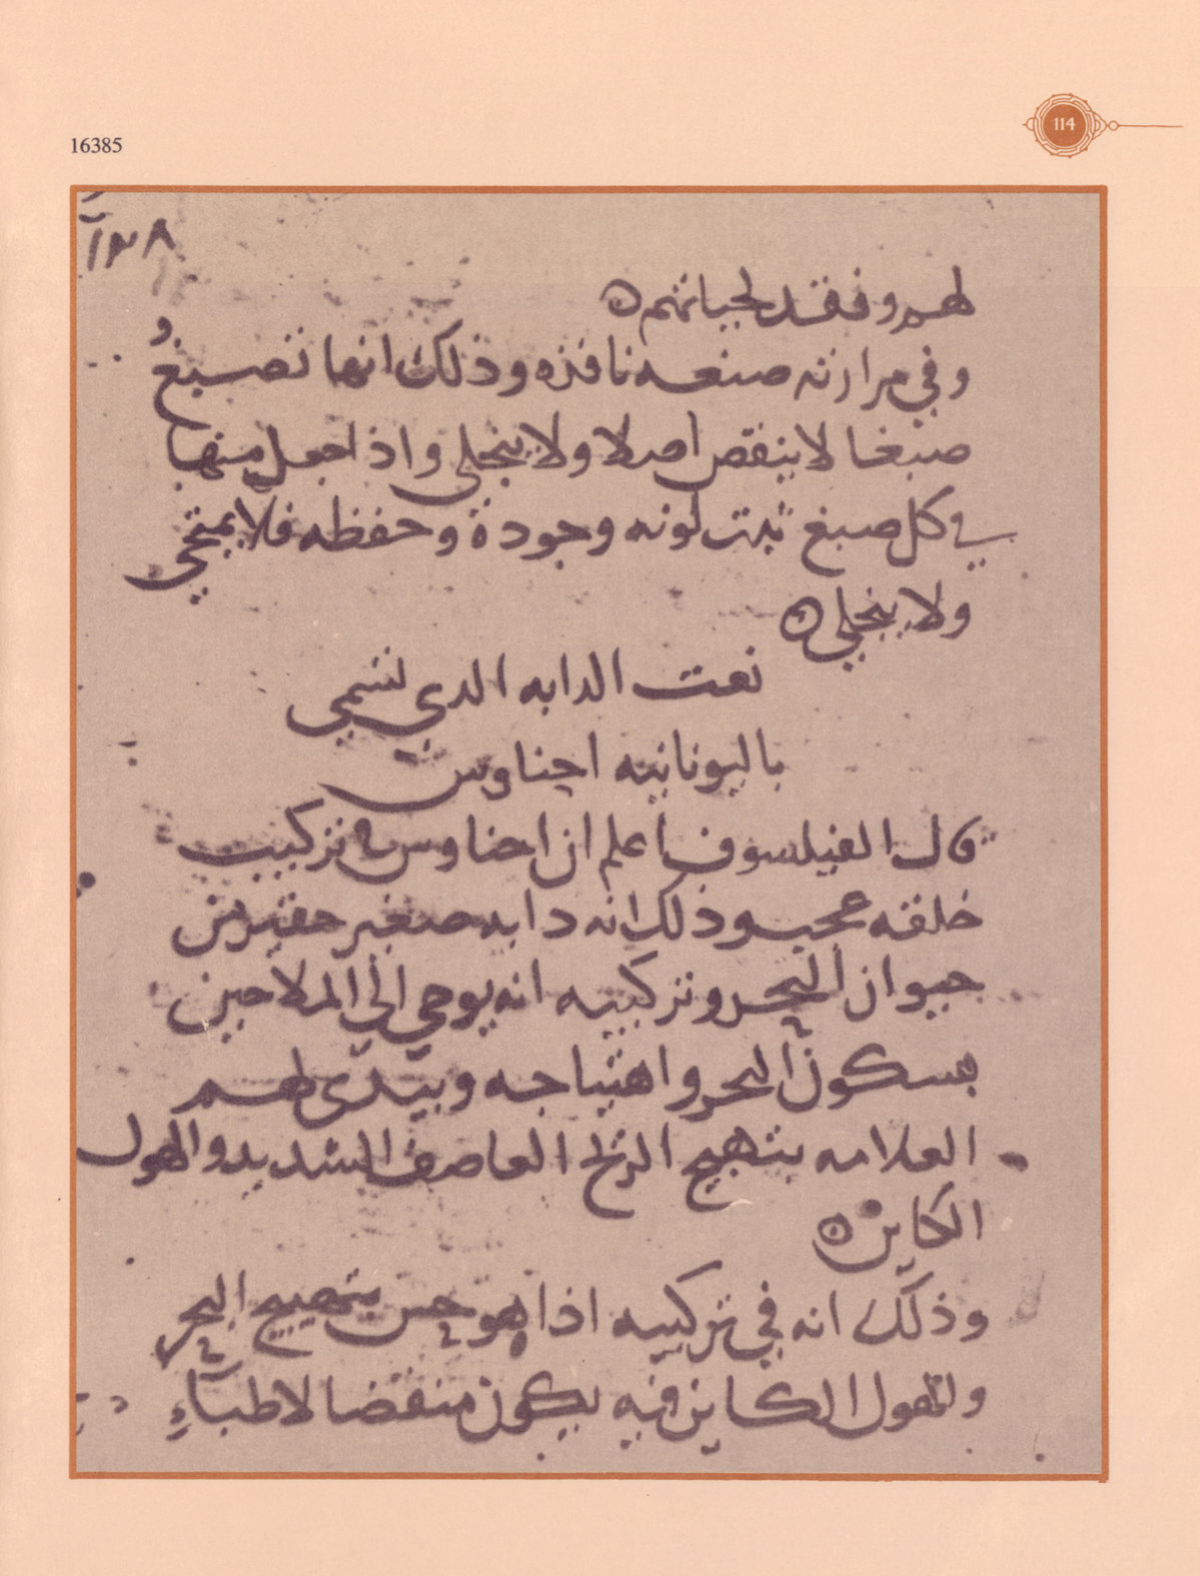 114
16385
١٣٨
لهم وفقد لحياتهم ه
وفي مرارته صنعه نافذه وذلك انها تصبغُ
صبغا لا ينقص اصلا ولا ينجلي واذا جعل منها
في كل صبغ ثبت لونه وجودة وحفظه فلا يمتحي
ولا ينجلي ه
نعت الدابه الدي تسمي
باليونانيه احناوس
قال الفيلسوف اعلم ان احناوس في تركيب
خلقته عجب وذلك انه دابه صغير حقير من
حيوان البحر وتركيبه انه يوحي الي الملاحين
بسكون البحر واهتياجه ويبدى لهم
العلامه بتهيج الريح العاصف الشديد والهول
الكاين ه
وذلك انه في تركيبه اذا هو حس بتهييج البحر
والهول الكاين فيه يكون منقضا لاطياء